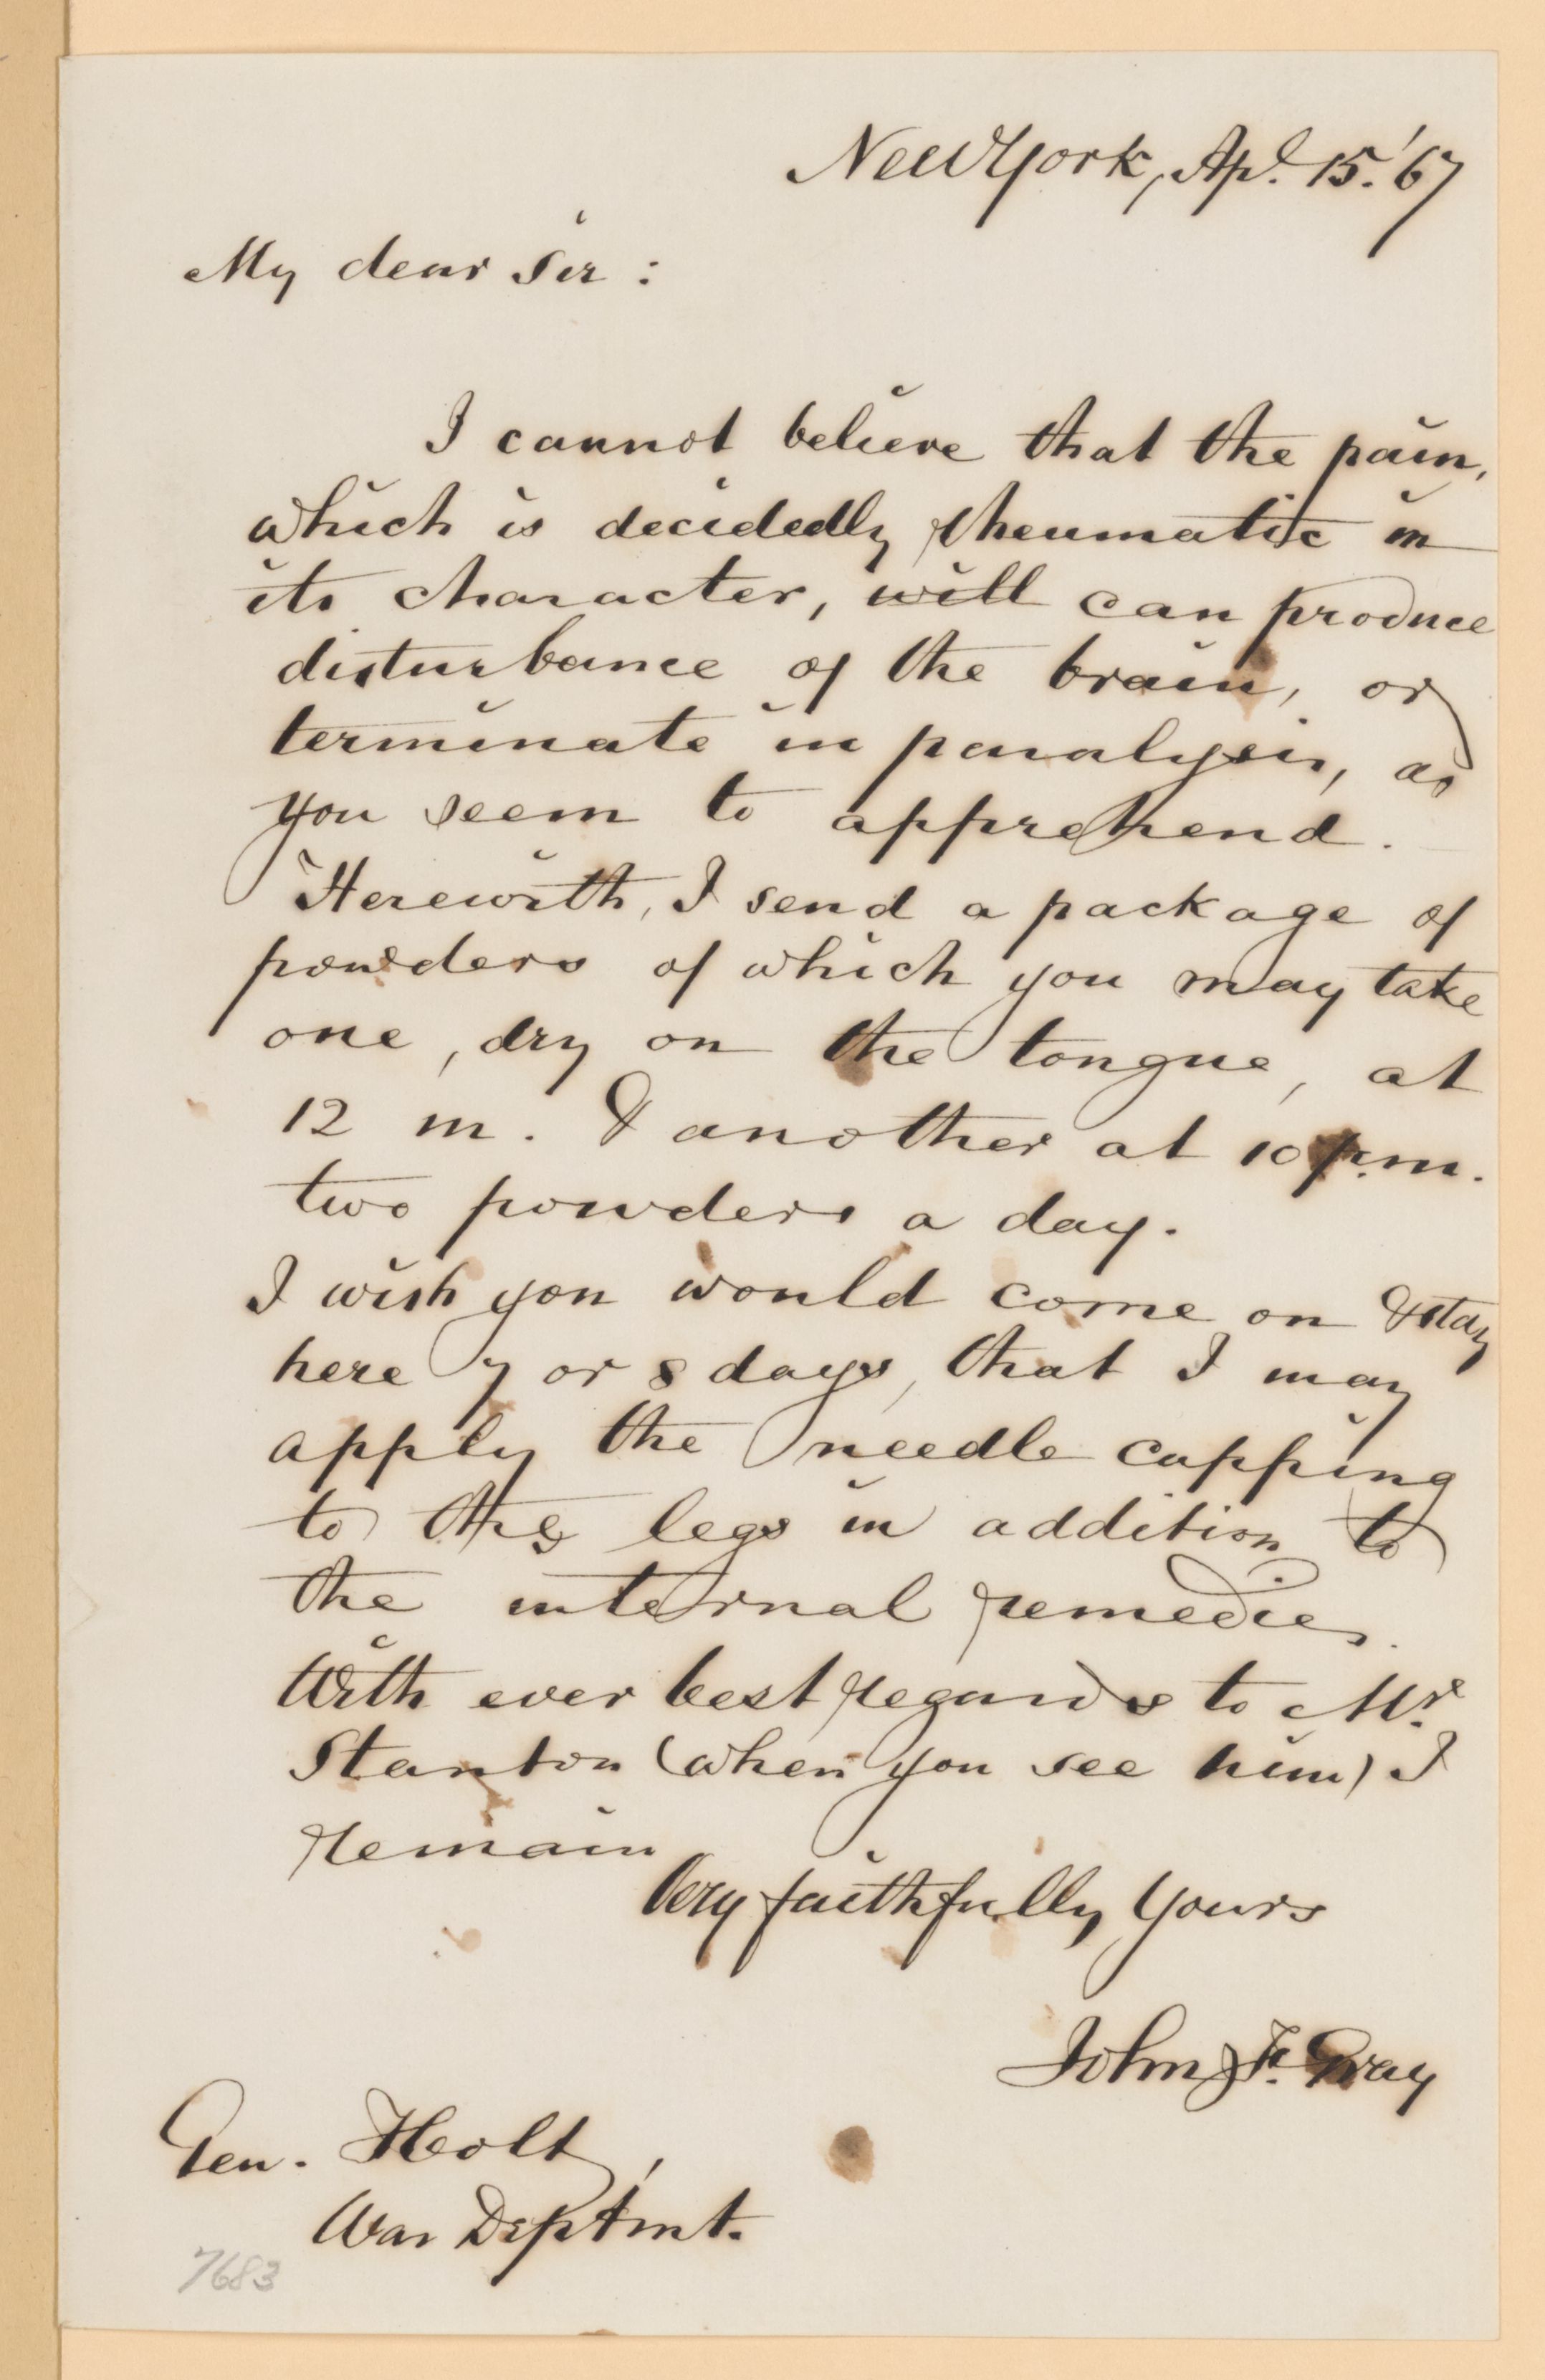 New York, Apl. 15. '67
My dear Sir :
I cannot believe that the pain,
which is decidedly rheumatic in
its character, will can produce
disturbance of the brain, or
terminate in paralysis, as
you seem to apprehend.
Herewith, I send a package of
powders of which you may take
one, dry on the tongue, at
12 m. & another at 10 p.m.
two powders a day.
I wish you would come on & stay
here 7 or 8 days, that I may
apply the needle cupping
to the legs in addition to
the internal remedies.
With ever best regards to Mr.
Stanton (when you see him) I
remain
Very faithfully Yours
John F. Gray
Gen. Holt,
War Deptmt.
7683